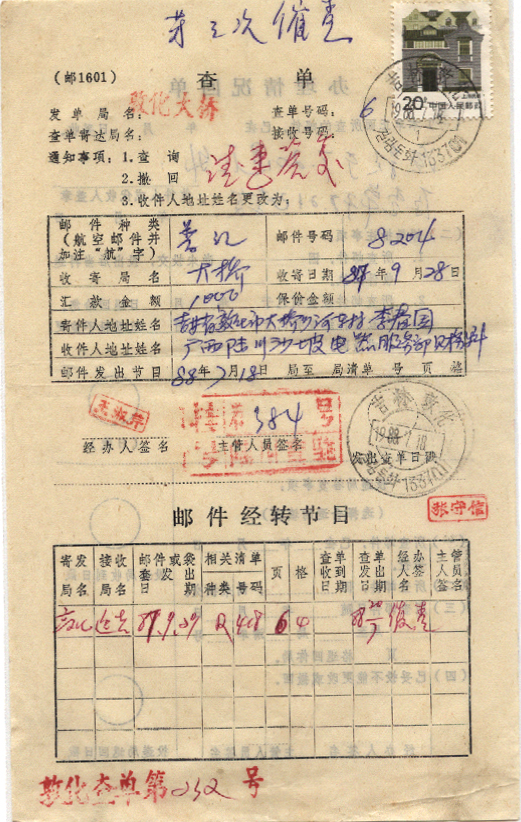 第三次催查
(邮1601) 查 单
20分 中国人民邮政
吉林 敦化
133701
发单局名: 敦化大桥 查单号码: 6
查单寄达局名: 接收局号:
通知事项: 1. 查 询
2. 撤 回
3. 收件人地址姓名更改为:
邮件种类 (航空邮件并加注“航”字) 邮件号码 8204
收寄局名 大桥 收寄日期 87年9月28日
汇款金额 1000 保价金额
寄件人地址姓名 吉林省敦化市大桥沙河 李春国
收件人地址姓名 广西陆川沙坡电器服务部
邮件发出节目 88年7月18日 局至 局清单 号 页 格
384 号
经办人签名 主管人员签名 发出查单日戳
吉林 敦化
1988.7.18
133701
张守信
邮件经转节目
寄发局名 接收局名 邮件或袋套发出日期 相关清单种类 号码 页 格 查单收到日期 查单发出日期 经办人签名 主管人员签名
敦化 87.9.29 418 6 4
敦化查单第 232 号